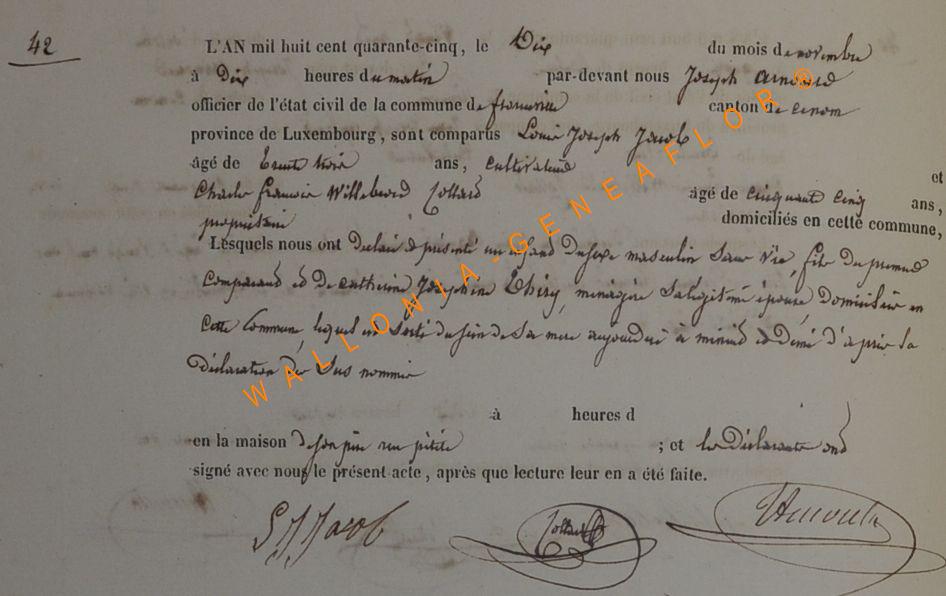 42
L'AN mil huit cent quarante-cinq, le Dix du mois de novembre
à Dix heures du matin par-devant nous Joseph
officier de l'état civil de la commune de canton de
province de Luxembourg, sont comparus Louis Joseph Jacob
âgé de trente trois ans, cultivateur et
Charles François Willebrord Collard âgé de cinquante cinq ans,
propriétaire domiciliés en cette commune,
Lesquels nous ont déclaré & présenté un enfant du sexe masculin sans vie, fils du premier
comparant et De catherine Josephine Thiry, menagère Sa légitime épouse Domiciliée en
Cette Commune, lequel est Sorti du sein de Sa mere aujourd'hui à minuit et Demi d'après la
déclaration des Sus nommés
à heures d
en la maison De son père rue petite ; et les Déclarants ont
signé avec nous le présent acte, après que lecture leur en a été faite.
L J Jacob
Collard
WALLONIA-GENEAFLOR®